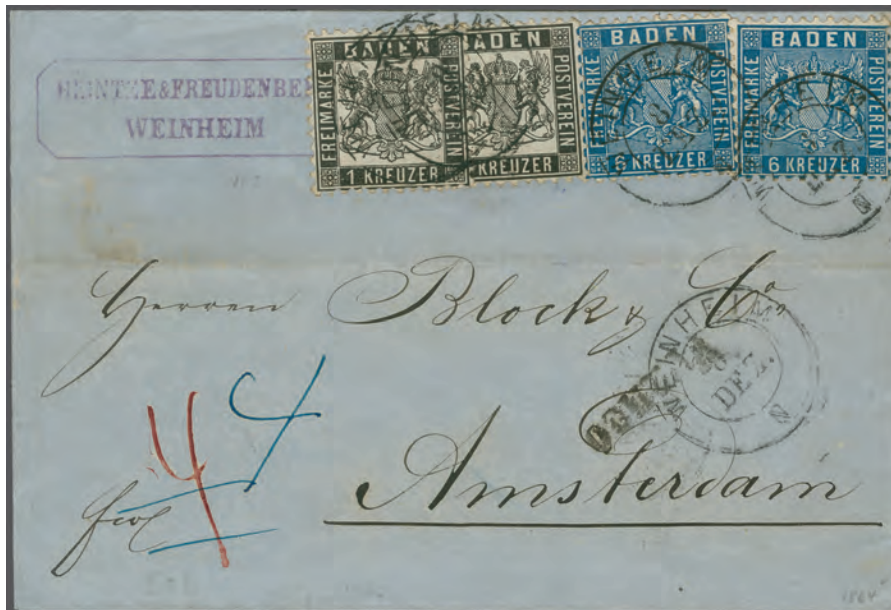 HEINTZE & FREUDENBE
WEINHEIM
BADEN
FREIMARKE
POSTVEREIN
1 KREUZER
BADEN
POSTVEREIN
KREUZER
BADEN
FREIMARKE
POSTVEREIN
6 KREUZER
BADEN
FREIMARKE
POSTVEREIN
6 KREUZER
Herren Block & Co
WEINHEIM
DEZ.
4 4
Amsterdam
1864